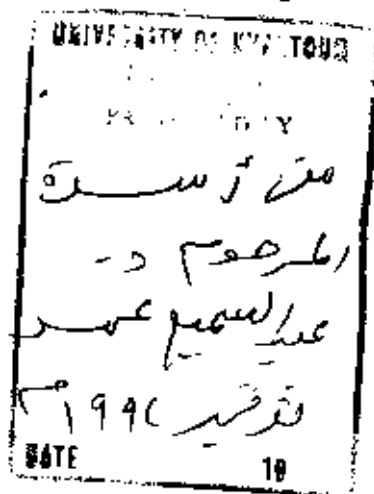 UNIVERSITY OF KHARTOUM
من أسرة
المرحوم د-
عبد السميع عمر
نوفمبر ١٩٩٤م
DATE 19